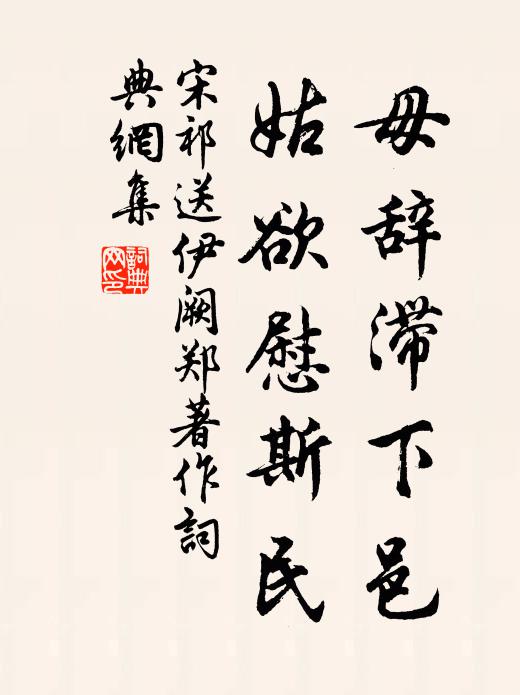 毋辞滞下邑
姑欲慰斯民
宋祁送伊阙郑著作詞
典網集
詞典
网印